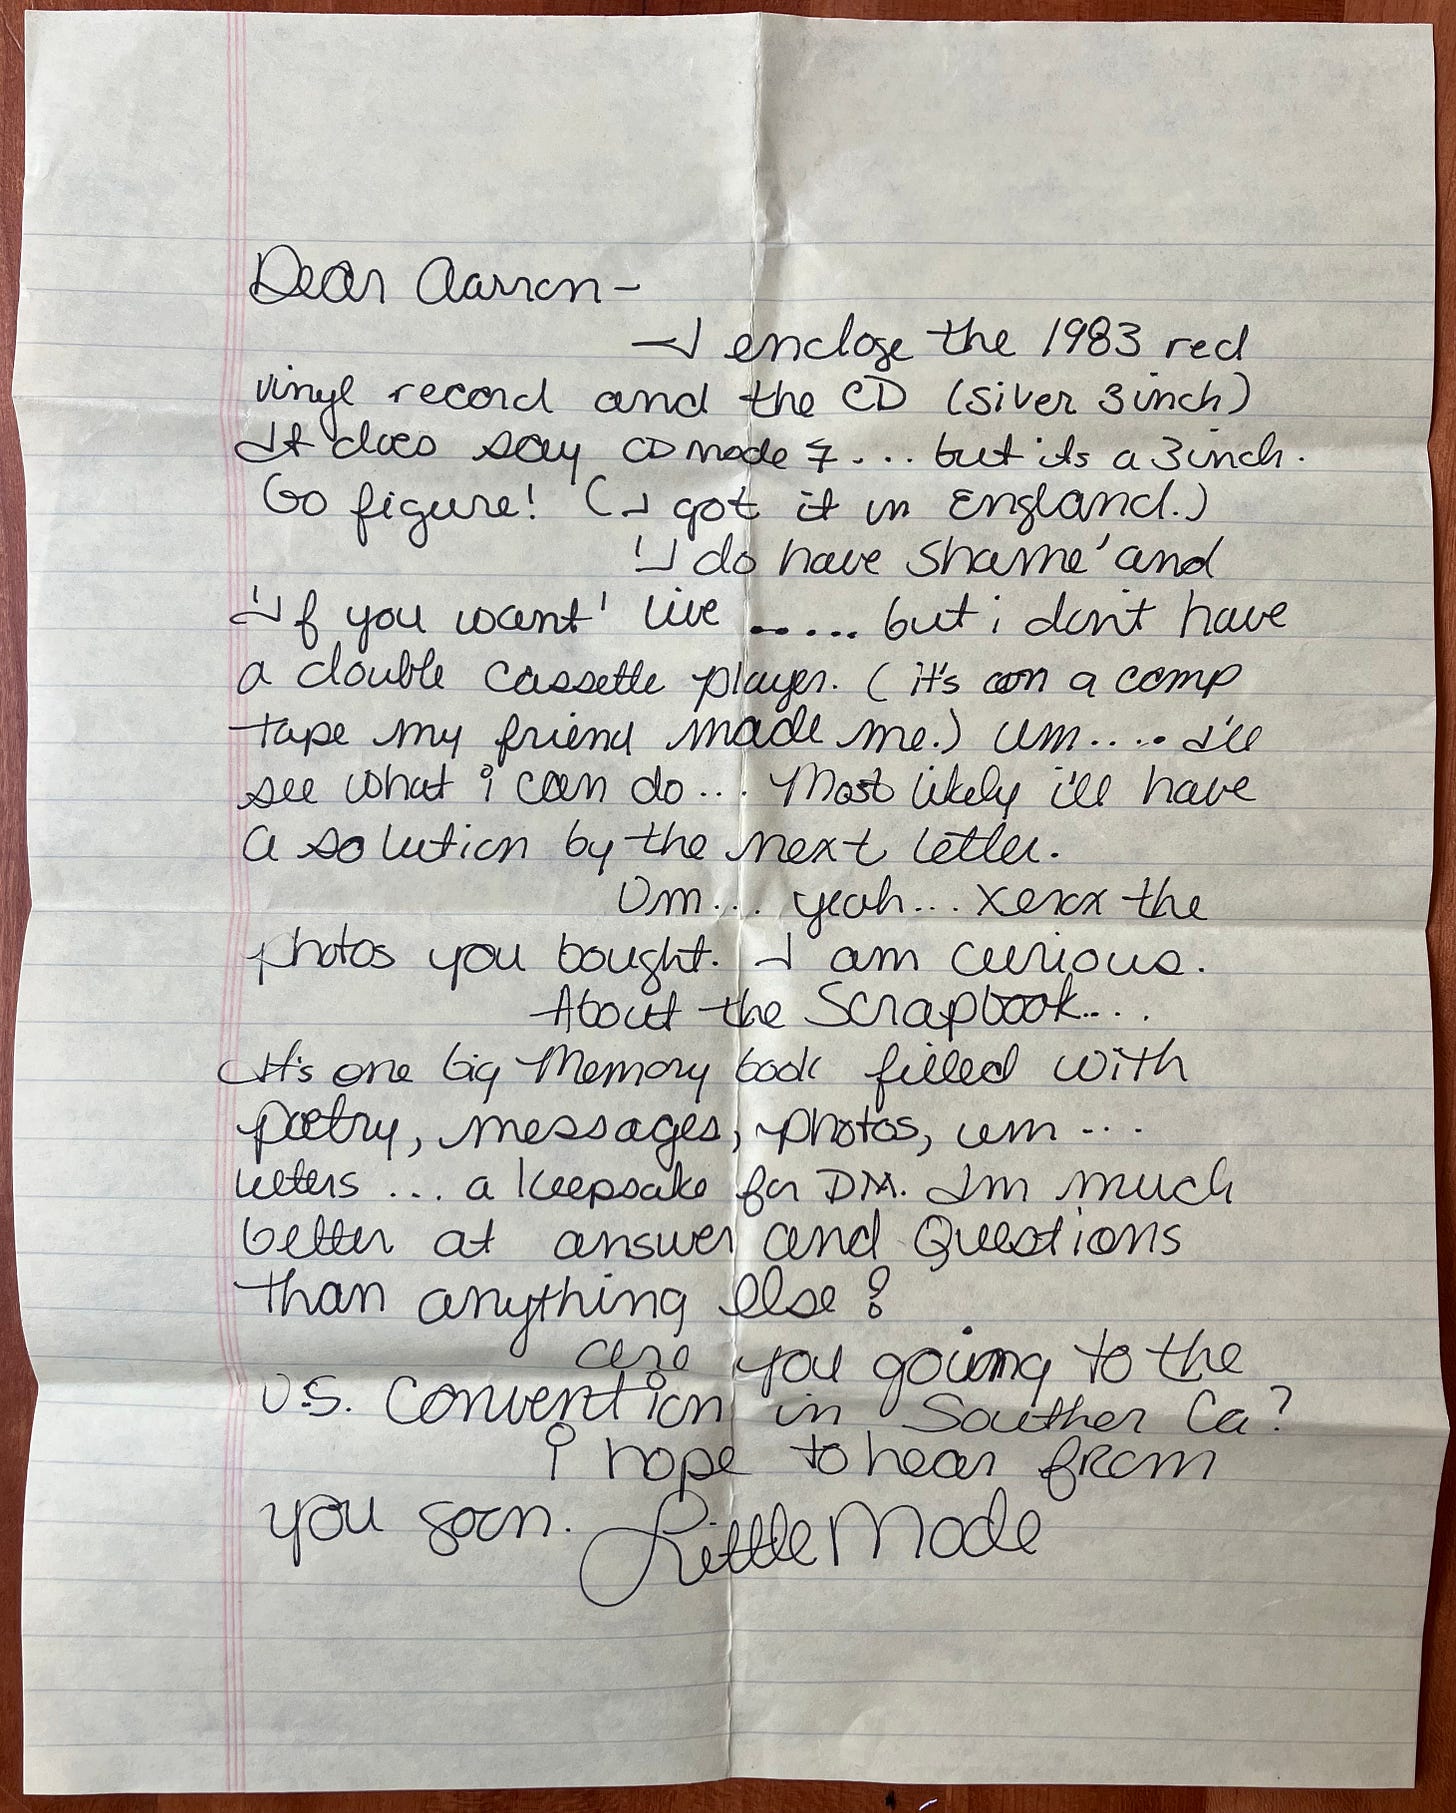 Dear Aarron-
I enclose the 1983 red
vinyl record and the CD (silver 3inch)
It does say CD mode 7.... but its a 3inch.
Go figure! (I got it in England.)
'I do have Shame' and
'If you want' live ..... but i don't have
a double cassette player. (it's on a comp
tape my friend made me.) Um.... I'll
see what i can do... Most likely i'll have
a solution by the next letter.
Um... yeah... xerox the
photos you bought. I am curious.
About the Scrapbook....
It's one big Memory book filled with
poetry, messages, photos, um...
letters ... a keepsake for DM. Im much
better at answer and Questions
than anything else?
are you going to the
U.S. Convention in Souther Ca?
i hope to hear from
you soon. Little Mode